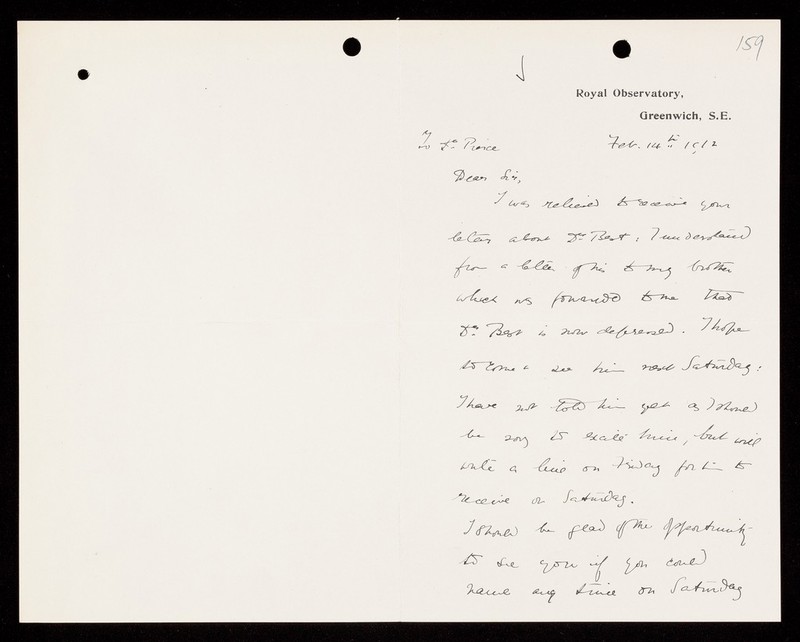 159
Royal Observatory,
Greenwich, S.E.
Feb. 14th 1912
To Dr. Pierce
Dear Sir,
I was relieved to receive your
letter about Dr. Best; I understand
from a letter of his to my brother
which was forwarded to me that
Dr. Best is now depressed. I hope
to come & see him next Saturday:
I have not told him yet as I should
be sorry to excite him, but will
write a line on Friday for him to
receive on Saturday.
I should be glad of the opportunity
to see you if you could
name any time on Saturday